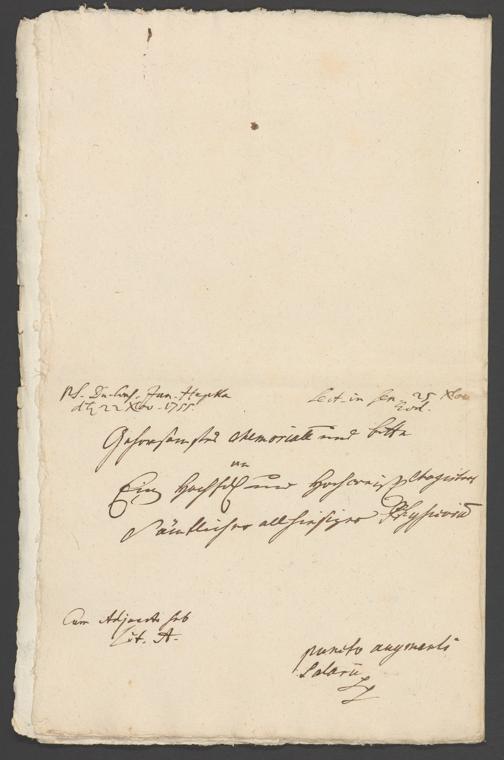 Ps. Du Cons. Jun. Hupka
d. 22 Nov. 1755.
Lect. in Sen 25 Nov
eod.
Gehorsamste Memoriale und bitte
an
Ein Hochedl und Hochweis Magistrat
Sämtlicher allhiesiger Physicorum
Cum Adjuncto sub
Lit. A.
puncto augmenti
Salarii